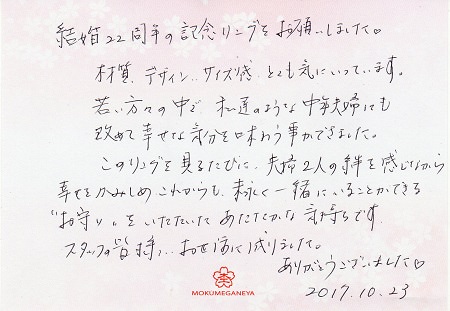 結婚22周年の記念リングをお願いしました♡
材質、デザイン、サイズ感、とても気にいっています。
若い方々の中で私達のような中年夫婦にも
改めて幸せな気分を味わう事ができました。
このリングを見るたびに、夫婦2人の絆を感じながら
幸せをかみしめこれからも、末永く一緒にいることができる
"お守り"をいただいてあたたかな気持ちです。
スタッフの皆様、、お世話に成りました。
ありがとうございました♡
2017.10.23
MOKUMEGANEYA